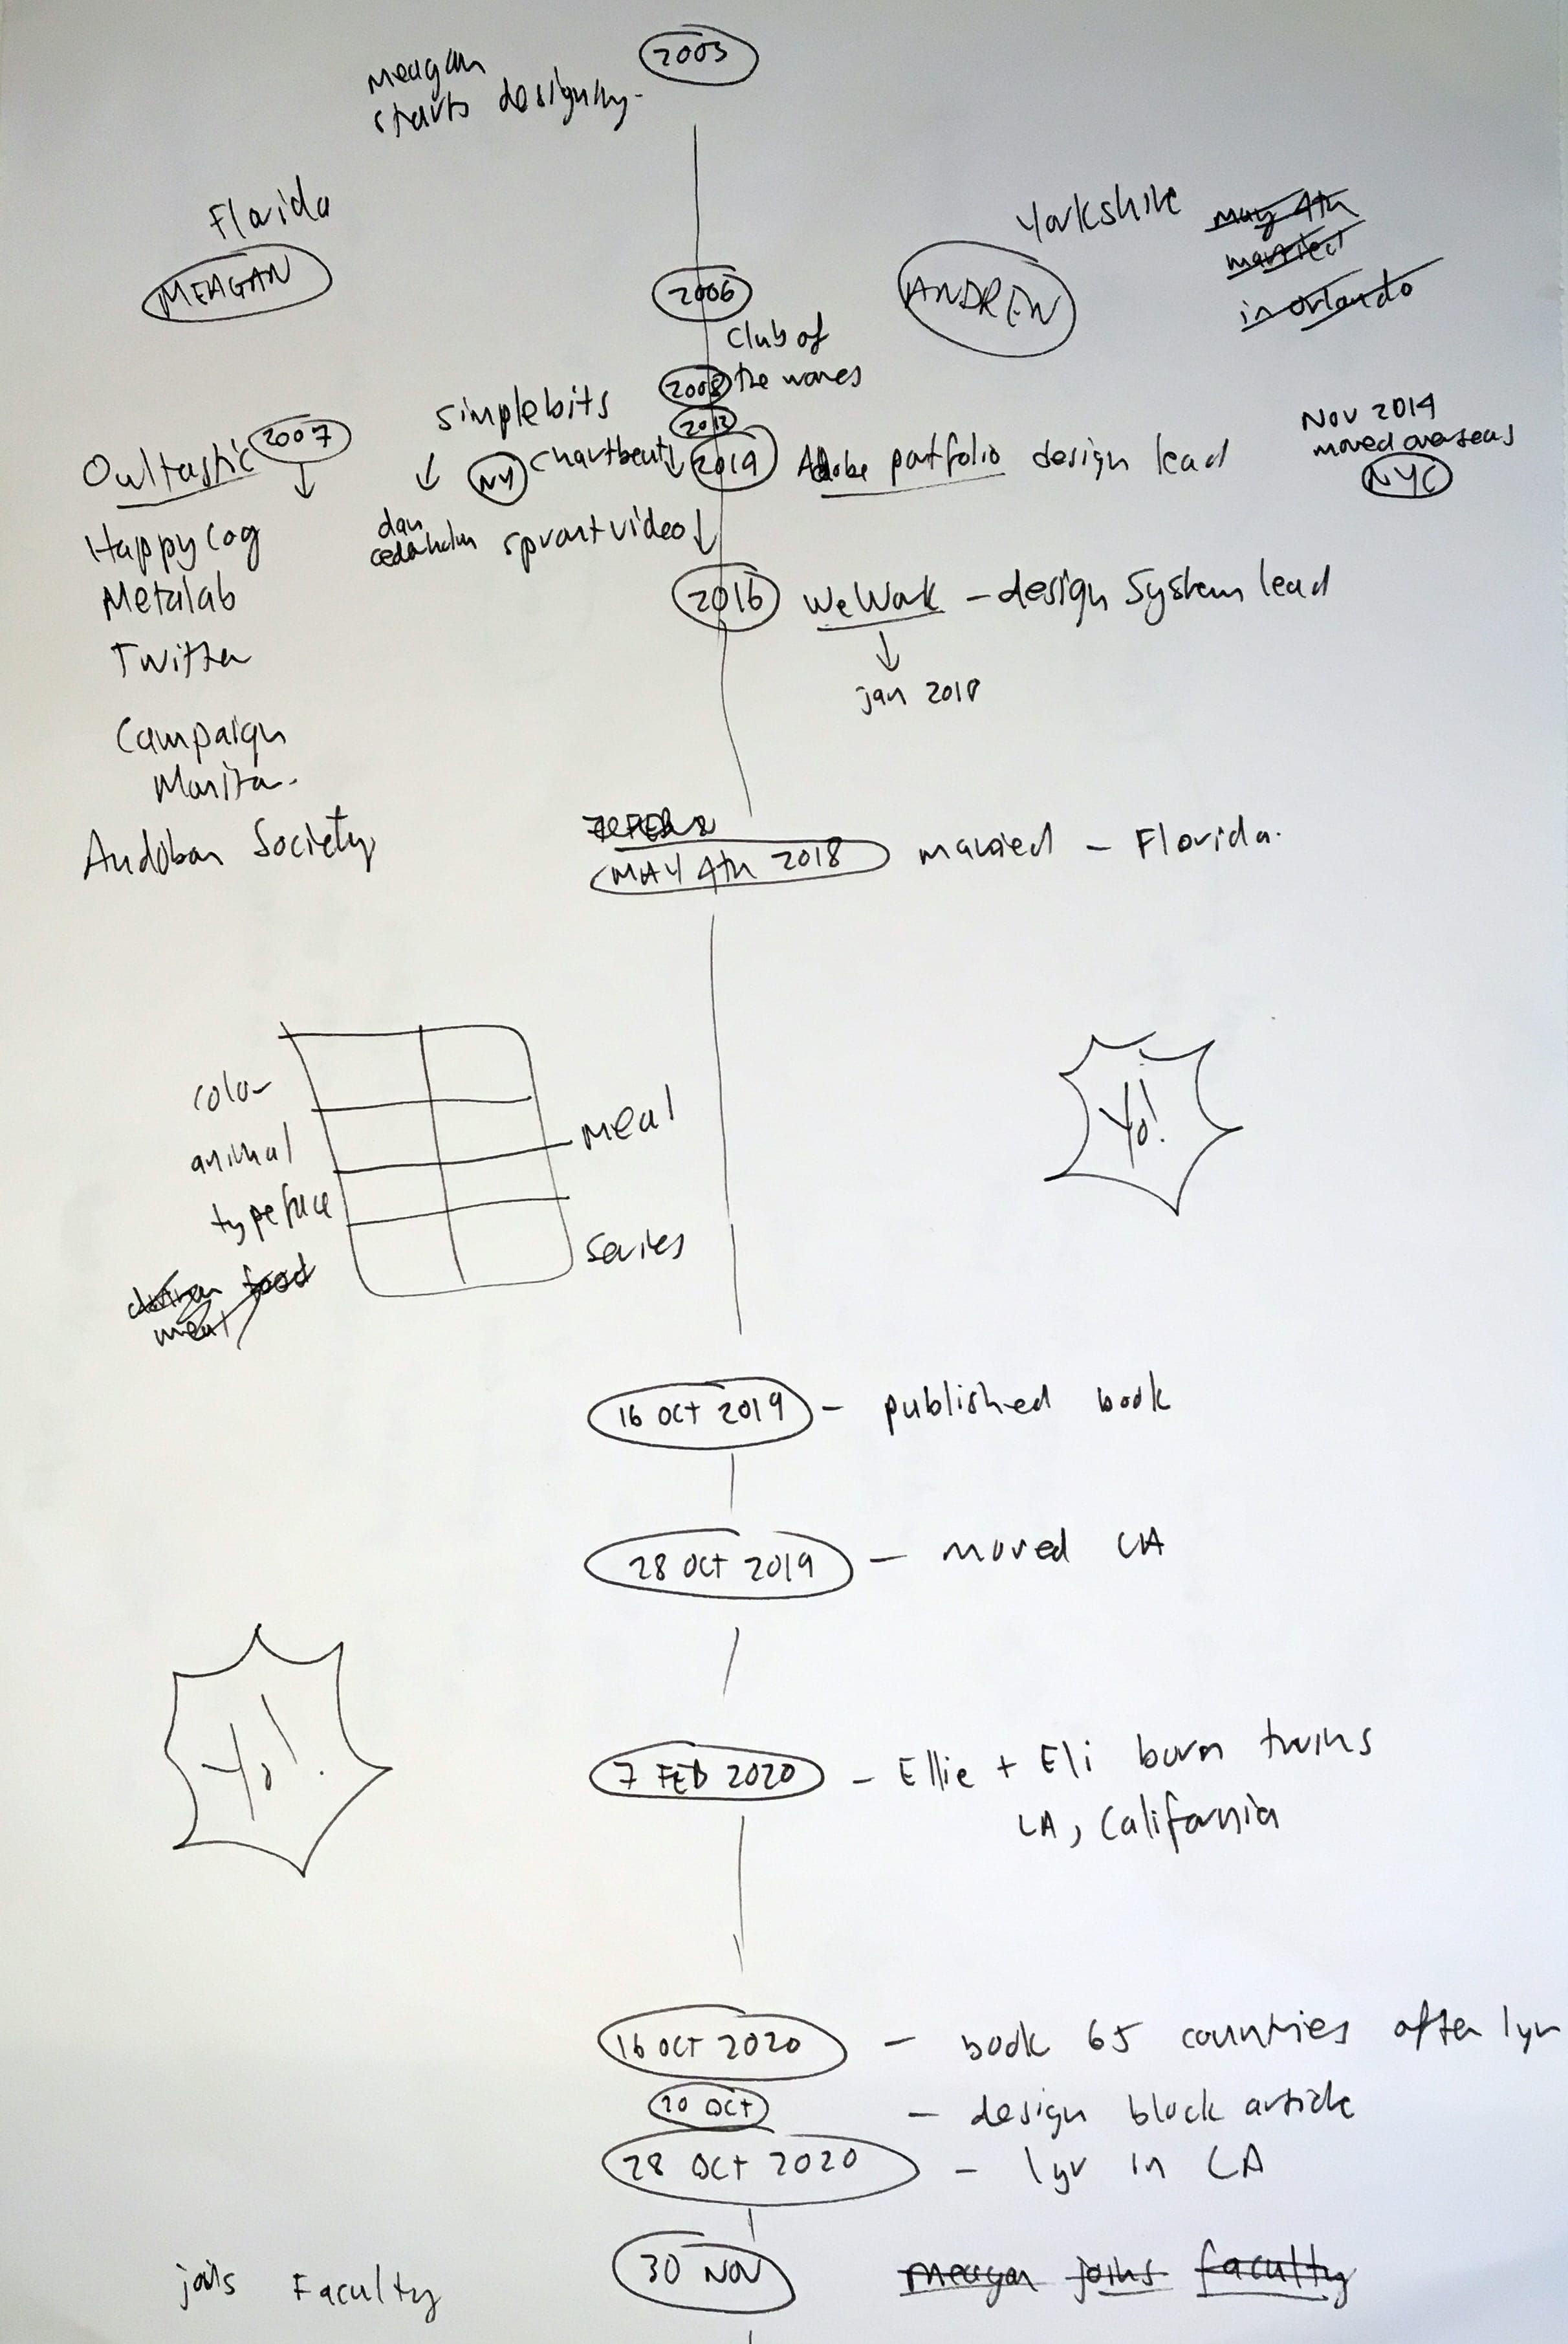 2003
Meagan
starts designing.
Florida
MEAGAN
Yorkshire
ANDREW
May 4th
married
in Orlando
2006
Club of
the waves
2008
2012
simplebits
2007
Owltastic
NY
Chartbeat
2014
Adobe portfolio design lead
Nov 2014
moved overseas
NYC
dan
cedarholm
sproutvideo
Happy Cog
Metalab
Twitter
2016
WeWork – design System lead
jan 2018
Campaign
Monitor
Audoban Society
MAY 4th 2018
married – Florida.
color
animal
typeface
meal
series
Yo!
16 OCT 2019 – published book
28 OCT 2019 – moved LA
Yo!
7 FEB 2020 – Ellie + Eli born twins
LA, California
16 OCT 2020 – book 65 countries after 1yr
20 OCT – design block article
28 OCT 2020 – 1yr in LA
joins Faculty
30 NOV
meagan joins faculty